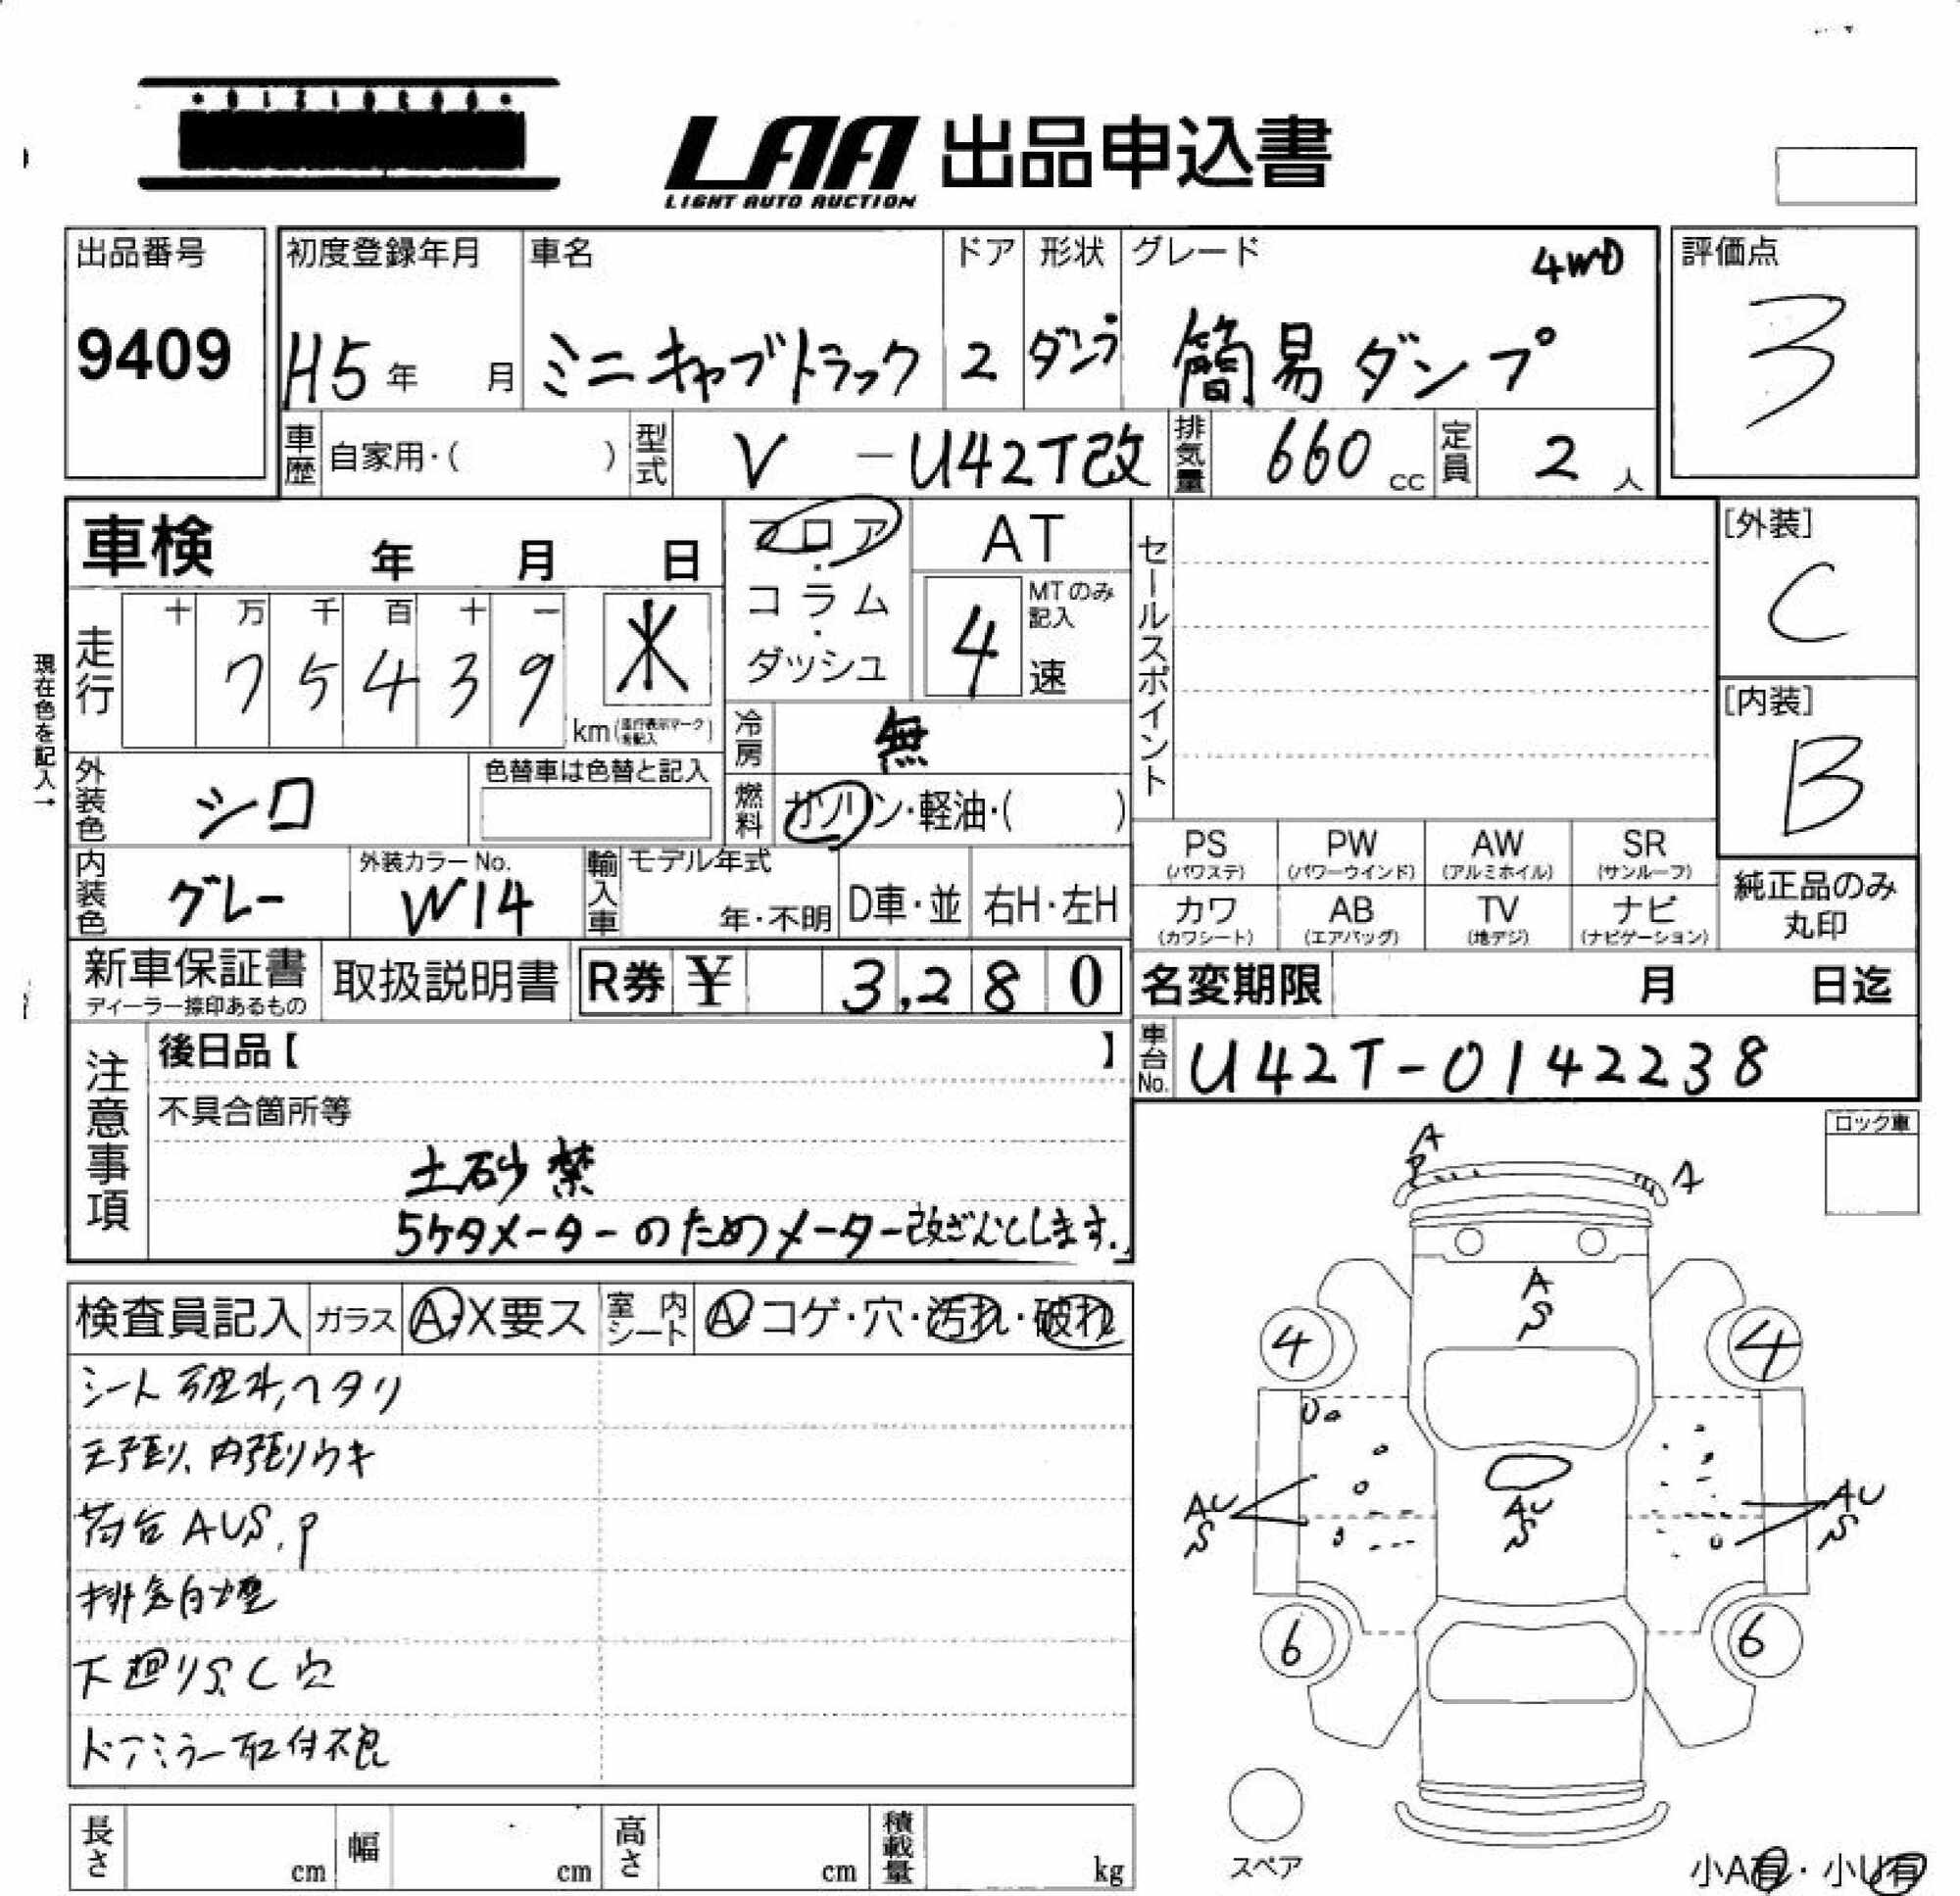 LAA 出品申込書
LIGHT AUTO AUCTION
出品番号
9409
初度登録年月
H5年 月
車名
ミニキャブトラック
ドア
2
形状
ダンプ
グレード
4WD
簡易ダンプ
評価点
3
車歴 自家用・( )
型式 V -U42T改
排気量 660 cc
定員 2 人
車検 年 月 日
フロア・コラム・ダッシュ
AT
4 MTのみ記入 速
セールスポイント
[外装]
C
[内装]
B
現在色を記入→
走行 十 万 千 百 十 一
75439 km (走行表示マークを記入)
冷房 無
燃料 ガソリン・軽油・( )
外装色 シロ
色替車は色替と記入
内装色 グレー
外装カラーNo.
W14
輸入車 モデル年式
年・不明 D車・並 右H・左H
PS (パワステ) PW (パワーウインド) AW (アルミホイル) SR (サンルーフ)
カワ (カワシート) AB (エアバッグ) TV (地デジ) ナビ (ナビゲーション)
純正品のみ
丸印
新車保証書
ディーラー捺印あるもの
取扱説明書
R券 ¥ 3,280
名変期限 月 日迄
車台No. U42T-0142238
注意事項
後日品【 】
不具合箇所等
土砂禁
5ケタメーターのためメーター改ざんとします.
ロック車
検査員記入 ガラス A・X要ス 室内シート A コゲ・穴・汚れ・破れ
ヘタリ
内張りウキ
荷台AUS,P
排気白煙
下廻りS,C穴
ドアミラー取付不良
A
P
A
A
S
4
4
AU
S
AU
S
AU
S
6
6
スペア
小A有・小U有
長さ cm 幅 cm 高さ cm 積載量 kg